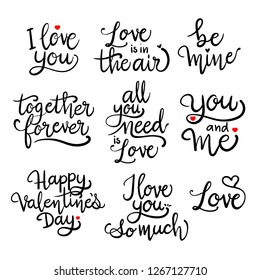 I love
you
Love
is in
the air
be
mine
together
forever
all
you
need
is Love
you
and
Me
Happy
Valentine's
Day.
I love
you
so much
Love
shutterstock.com · 1267127710